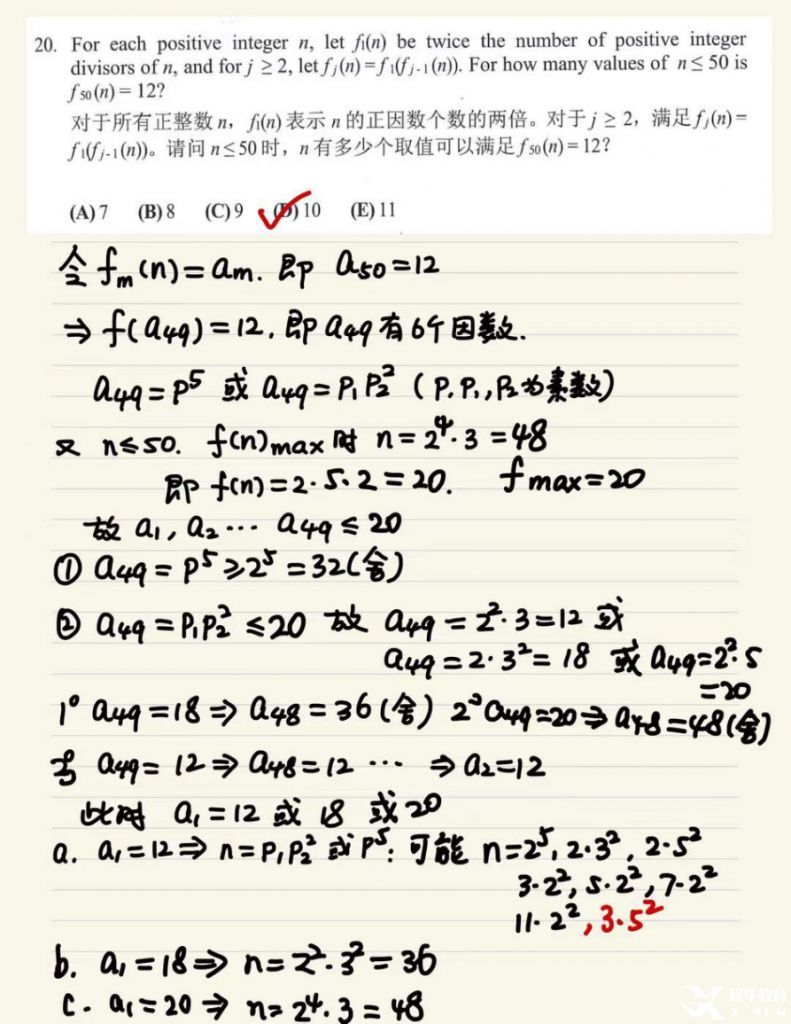 20. For each positive integer n, let f₁(n) be twice the number of positive integer
divisors of n, and for j ≥ 2, let fⱼ(n) = f₁(fⱼ₋₁(n)). For how many values of n ≤ 50 is
f₅₀(n) = 12?
对于所有正整数 n，f₁(n) 表示 n 的正因数个数的两倍。对于 j ≥ 2，满足 fⱼ(n) =
f₁(fⱼ₋₁(n))。请问 n ≤ 50 时，n 有多少个取值可以满足 f₅₀(n) = 12?
(A) 7 (B) 8 (C) 9 (D) 10 (E) 11
令 fₘ(n) = aₘ. 即 a₅₀ = 12
⇒ f(a₄₉) = 12, 即 a₄₉ 有 6个因数.
a₄₉ = p⁵ 或 a₄₉ = p₁p₂² (p, p₁, p₂为素数)
又 n ≤ 50. f(n)max 时 n = 2⁴·3 = 48
即 f(n) = 2·5·2 = 20. fmax = 20
故 a₁, a₂ ··· a₄₉ ≤ 20
① a₄₉ = p⁵ ≥ 2⁵ = 32 (舍)
② a₄₉ = p₁p₂² ≤ 20 故 a₄₉ = 2²·3 = 12 或
a₄₉ = 2·3² = 18 或 a₄₉ = 2²·5
= 20
1° a₄₉ = 18 ⇒ a₄₈ = 36 (舍) 2° a₄₉ = 20 ⇒ a₄₈ = 48 (舍)
3° a₄₉ = 12 ⇒ a₄₈ = 12 ··· ⇒ a₂ = 12
此时 a₁ = 12 或 18 或 20
a. a₁ = 12 ⇒ n = p₁p₂² 或 p⁵: 可能 n = 2⁵, 2·3², 2·5²
3·2², 5·2², 7·2²
11·2², 3·5²
b. a₁ = 18 ⇒ n = 2²·3² = 36
c. a₁ = 20 ⇒ n = 2⁴·3 = 48
X NEW